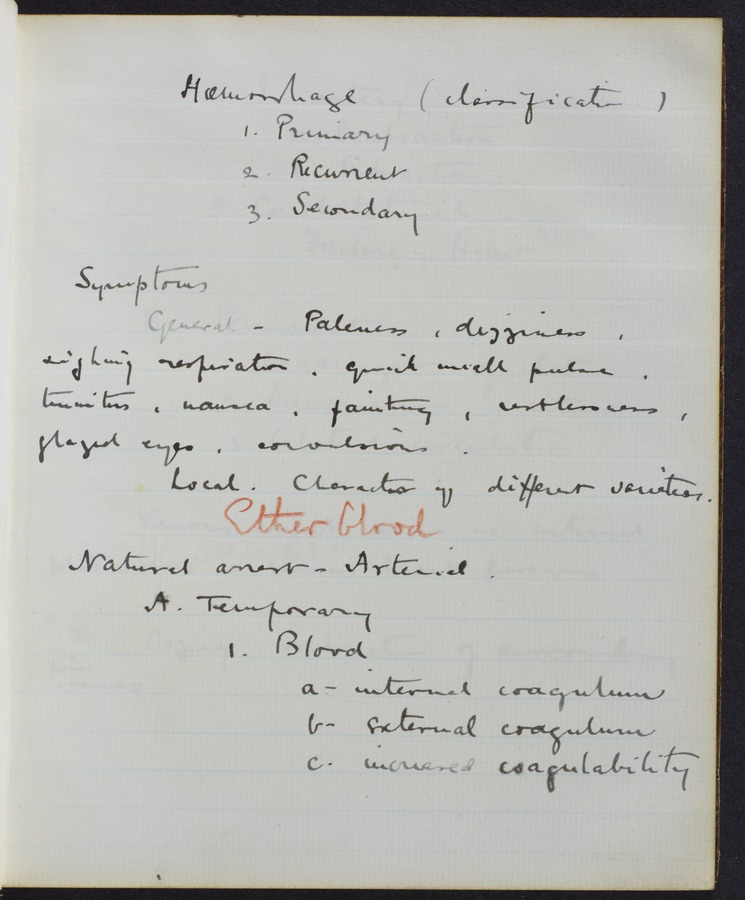 Hæmorrhage (classification)
1. Primary
2. Recurrent
3. Secondary
Symptoms
General - Paleness, dizziness,
sighing respiration, quick small pulse,
tinnitus, nausea, fainting, restlessness,
glazed eyes, convulsions.
Local. Character of different varieties.
Ether blood
Natural arrest - Arterial.
A. Temporary
1. Blood
a - internal coagulum
b - external coagulum
c. increased coagulability